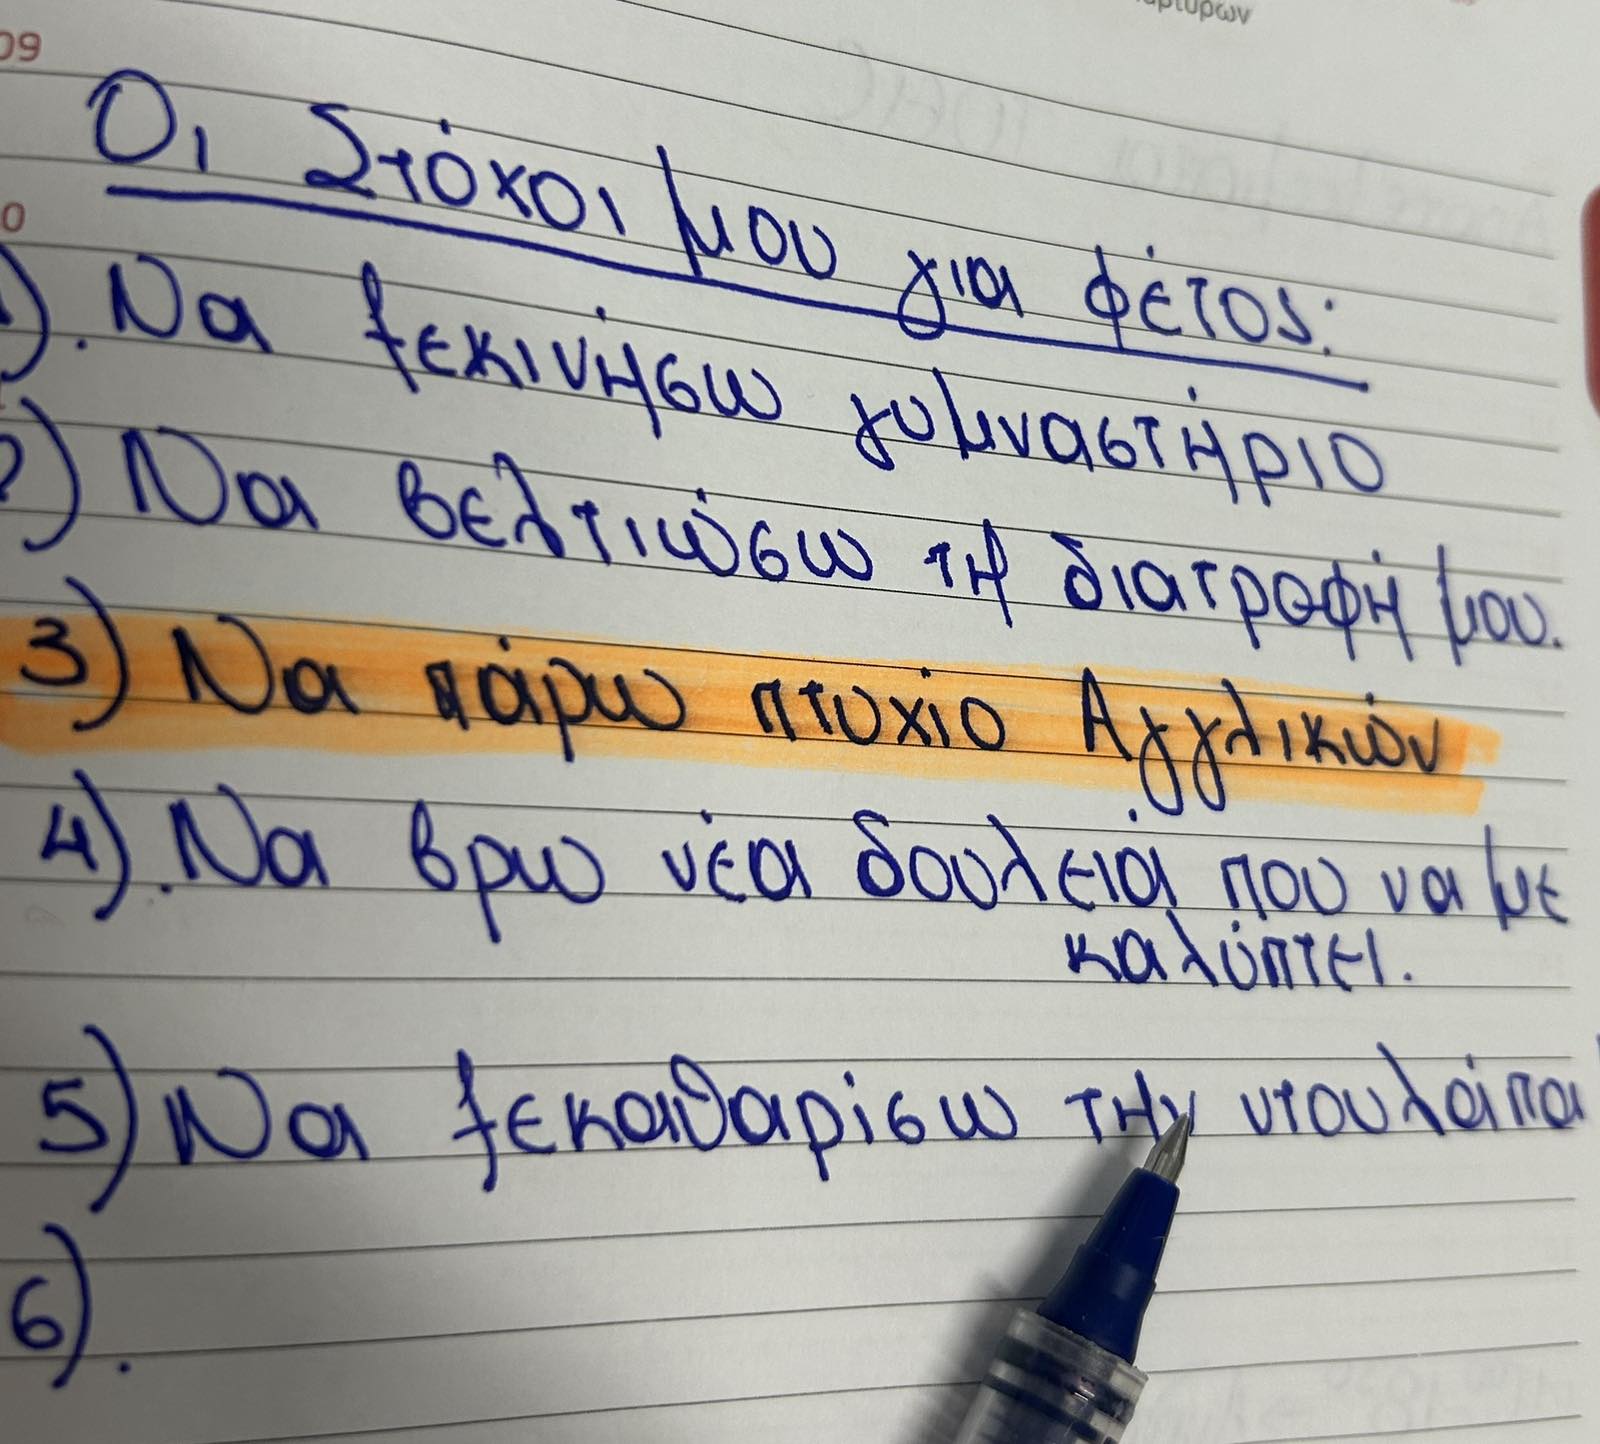 09
Οι Στόχοι μου για φέτος:
1). Να ξεκινήσω γυμναστήριο
2) Να βελτιώσω τη διατροφή μου.
3) Να πάρω πτυχίο Αγγλικών
4). Να βρω νέα δουλειά που να με
καλύπτει.
5) Να ξεκαθαρίσω την ντουλάπα
6).